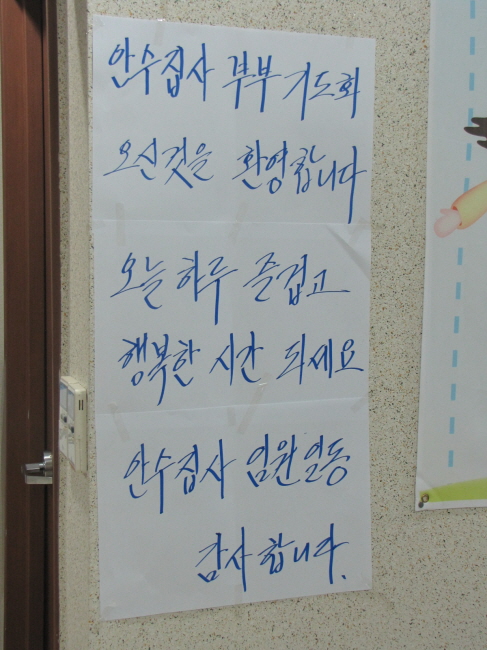 안수집사 부부 기도회
오신것을 환영합니다
오늘 하루 즐겁고
행복한 시간 되세요
안수집사 임원일동
감사합니다.